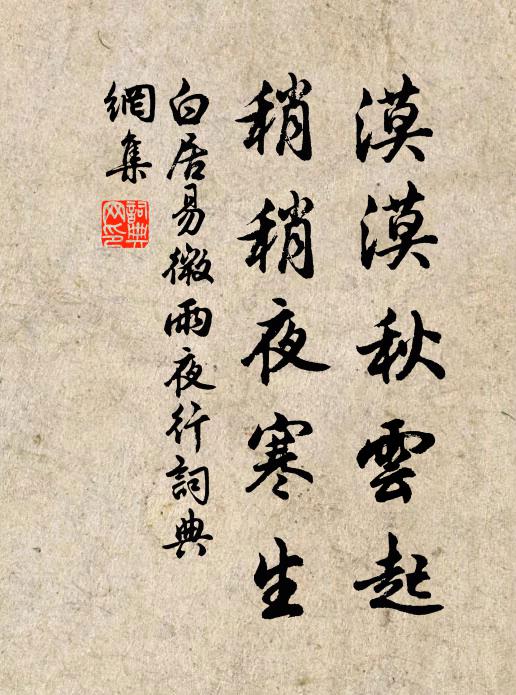 漠漠秋雲起
稍稍夜寒生
白居易微雨夜行詞典
網集
詞典網印